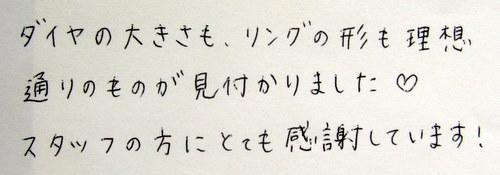 ダイヤの大きさも、リングの形も理想
通りのものが見付かりました♡
スタッフの方にとても感謝しています!